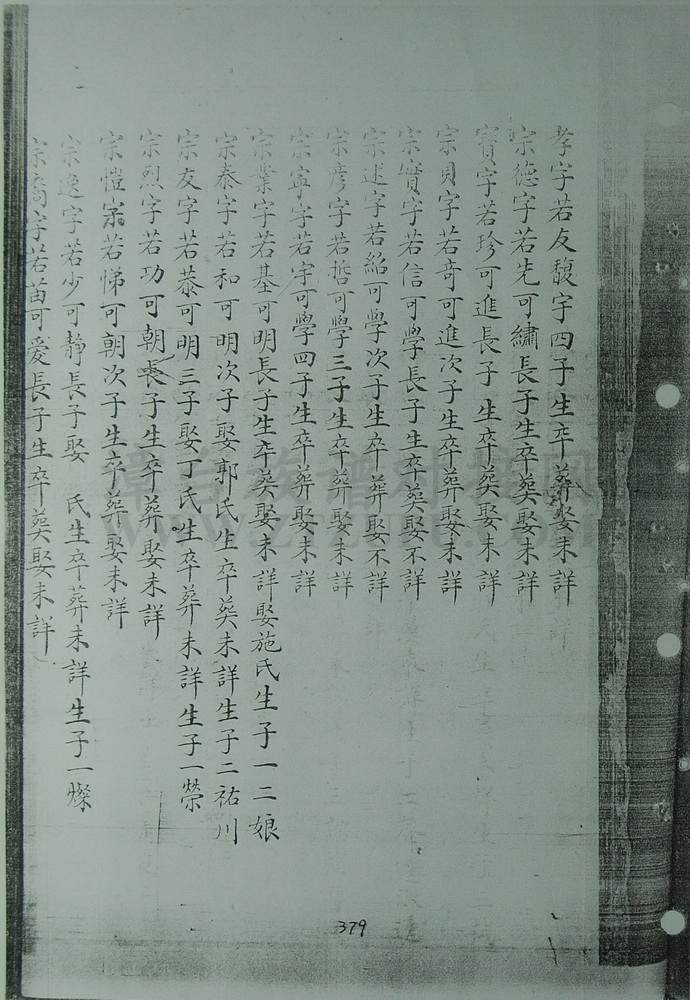 孝字若友馥宇四子生卒葬娶未詳
宗德字若先可繡長子生卒葬娶未詳
宗賓字若珍可進長子生卒葬娶未詳
宗貝字若奇可進次子生卒葬娶未詳
宗實字若信可學長子生卒葬娶不詳
宗述字若紹可學次子生卒葬娶不詳
宗彦字若哲可學三子生卒葬娶未詳
宗寧字若宇可學四子生卒葬娶未詳
宗業字若基可明長子生卒葬娶未詳娶施氏生子一二娘
宗泰字若和可明次子娶郭氏生卒葬未詳生子二祐川
宗友字若恭可明三子娶丁氏生卒葬未詳生子一榮
宗烈字若功可朝長子生卒葬娶未詳
宗愷字若悌可朝次子生卒葬娶未詳
宗逸字若少可靜長子娶 氏生卒葬未詳生子一燦
宗喬字若苗可愛長子生卒葬娶未詳
379